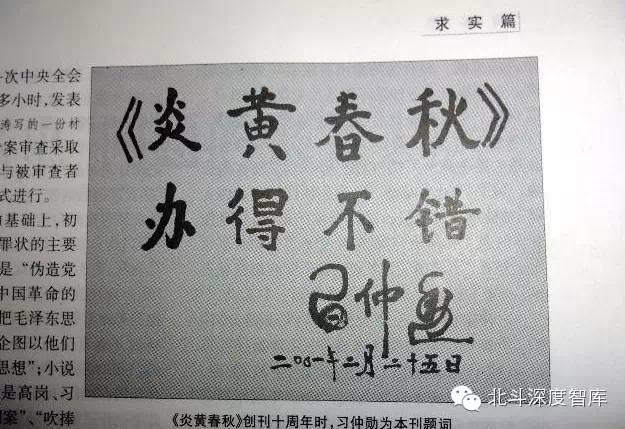 求实篇
次中央全会
多小时,发表
涛写的一份材
案审查采取
与被审查者
式进行。
基础上,初
罪状的主要
是“伪造党
中国革命的
把毛泽东思
企图以他们
思想”;小说
是高岗、习
案”、“吹捧
《炎黄春秋》
办得不错
習仲勋
二〇〇一年二月二十五日
《炎黄春秋》创刊十周年时,习仲勋为本刊题词
北斗深度智库